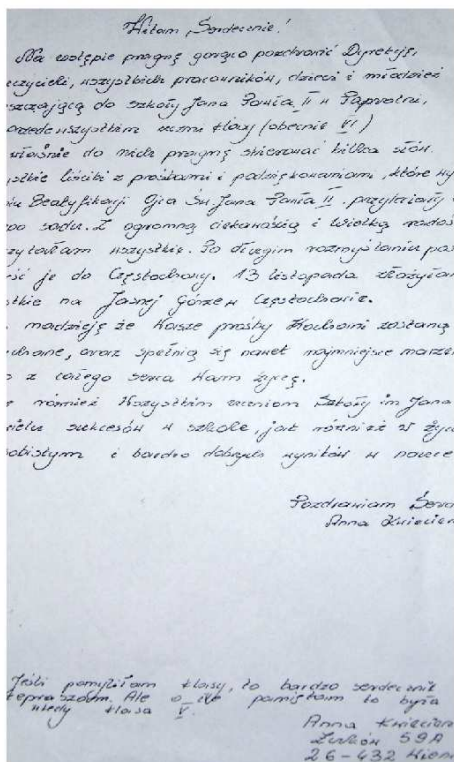 Witam Serdecznie!
Na wstępie pragnę gorąco pozdrowić Dyrekcję,
wszystkich pracowników, dzieci i młodzież
szczającą do szkoły Jana Pawła II w Paprotni,
przede wszystkim uczni klasy (obecnie VI)
właśnie do nich pragnę skierować kilka słów.
ystkie liściki z prośbami i podziękowaniami, które wy
Beatyfikacji Ojca Św. Jana Pawła II przyleciały
sadu. Z ogromną ciekawością i wielką radoś
czytałam wszystkie. Po długim rozmyślaniu po
je do Częstochowy. 13 listopada złożyłam
stkie na Jasnej Górze w Częstochowie.
nadzieję że Wasze prośby Kochani zostaną
chane, oraz spełnią się nawet najmniejsze marze
z całego serca Wam życzę.
również Wszystkim uczniom Szkoły im Jana
wielu sukcesów w szkole, jak również w życiu
obistym i bardzo dobrych wyników w nauce
Pozdrawiam Serd
Anna Kwiecien
Jeśli pomyliłam klasy, to bardzo serdecznie
przepraszam. Ale o ile pamiętam to była
wtedy klasa V.
Anna Kwiecien
59A
26-432 Wien